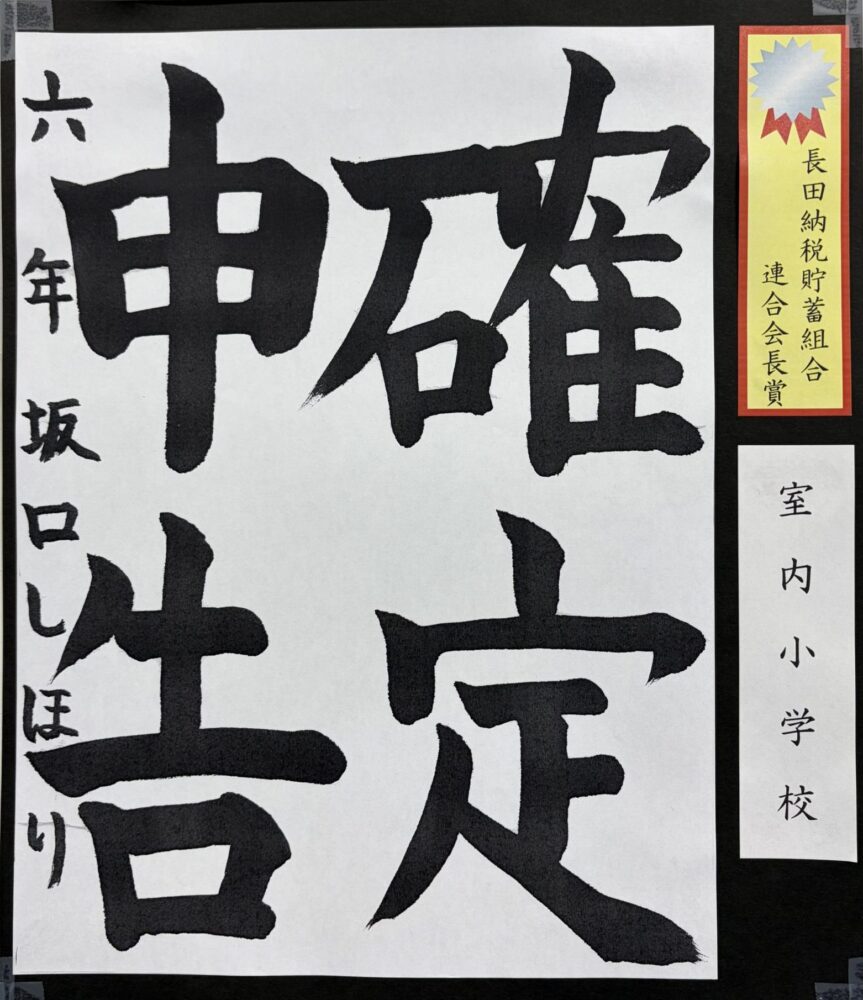 長田納税貯蓄組合
連合会長賞
室内小学校
確定
申告
六年坂口しほり